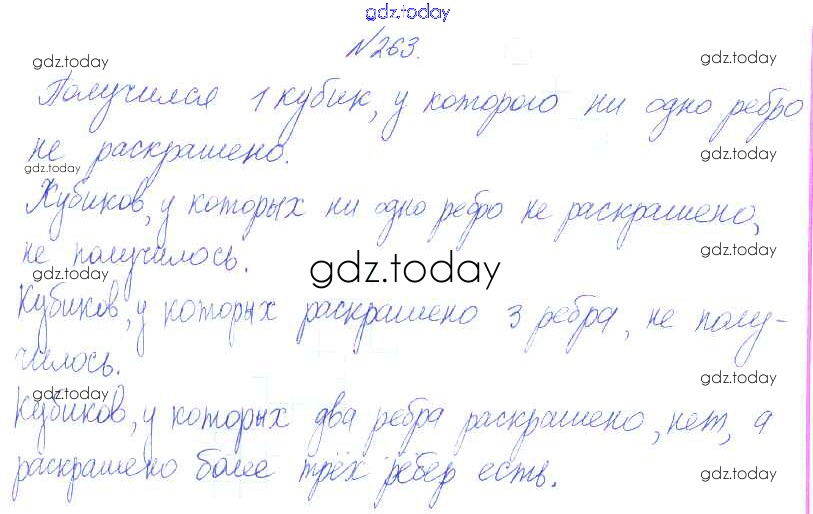 gdz.today
№263.
gdz.today gdz.today
Получился 1 кубик, у которого ни одно ребро
не раскрашено.
gdz.today gdz.today
Кубиков, у которых ни одно ребро не раскрашено,
не получилось.
gdz.today gdz.today gdz.today
Кубиков, у которых раскрашено 3 ребра, не полу-
чилось.
gdz.today gdz.today
Кубиков, у которых два ребра раскрашено, нет, а
раскрашено более трёх рёбер есть.
gdz.today